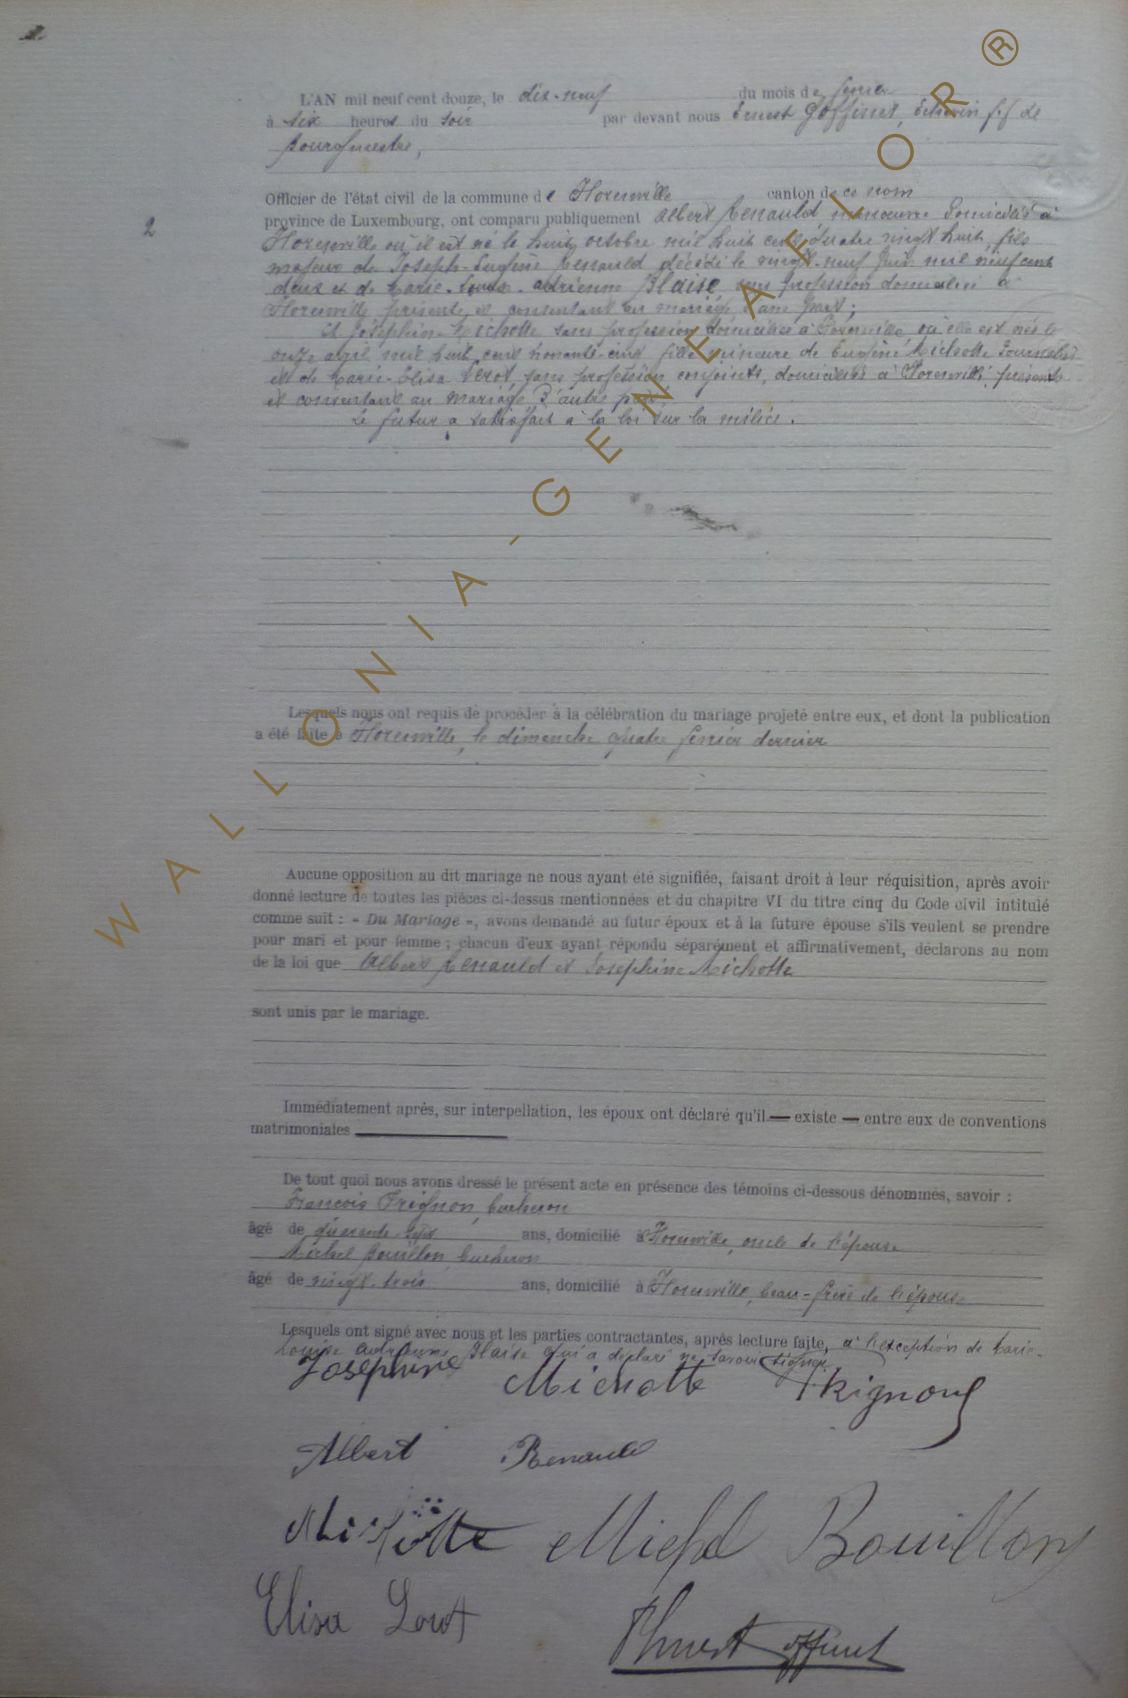 L'AN mil neuf cent douze, le dix-neuf du mois de février
à six heures du soir par devant nous Ernest Goffinet, Echevin f.f de
Bourgmestre,
Officier de l'état civil de la commune de Florenville canton de ce nom
2
province de Luxembourg, ont comparu publiquement Albert Renauld manoeuvre domicilié à
Florenville où il est né le huit octobre mil huit cent quatre vingt huit, fils
majeur de Joseph-Eugène Renauld décédé le vingt-neuf juin mil neuf cent
deux et de Marie-Louise-Adrienne Blaise sans profession domiciliée à
Florenville présente et consentant au mariage d'une part;
Et Joséphine Michotte sans profession domiciliée à Florenville où elle est née le
onze avril mil huit cent nonante-cinq fille mineure de Eugène Michotte Journalier
et de Marie-Elisa sans profession conjoints, domiciliés à Florenville présents
et consentant au mariage d'autre part.
Le futur a satisfait à la loi sur la milice.
Lesquels nous ont requis de procéder à la célébration du mariage projeté entre eux, et dont la publication
a été faite à Florenville, le dimanche quatre février dernier
Aucune opposition au dit mariage ne nous ayant été signifiée, faisant droit à leur réquisition, après avoir
donné lecture de toutes les pièces ci-dessus mentionnées et du chapitre VI du titre cinq du Code civil intitulé
comme suit : « Du Mariage », avons demandé au futur époux et à la future épouse s'ils veulent se prendre
pour mari et pour femme ; chacun d'eux ayant répondu séparément et affirmativement, déclarons au nom
de la loi que Albert Renauld et Joséphine Michotte
sont unis par le mariage.
Immédiatement après, sur interpellation, les époux ont déclaré qu'il — existe — entre eux de conventions
matrimoniales
De tout quoi nous avons dressé le présent acte en présence des témoins ci-dessous dénommés, savoir :
François Trignon, bucheron
âgé de quarante sept ans, domicilié à Florenville, oncle de l'épouse
Michel Bouillon bucheron
âgé de vingt trois ans, domicilié à Florenville, beau-frère de l'épouse
Lesquels ont signé avec nous et les parties contractantes, après lecture faite, à l'exception de Marie-
Louise Adrienne Blaise qui a déclaré ne savoir signer
Joséphine Michotte Trignon
Albert Renauld
Michotte Michel Bouillon
Elisa
Goffinet
WALLONIA-GENEAFLOR®